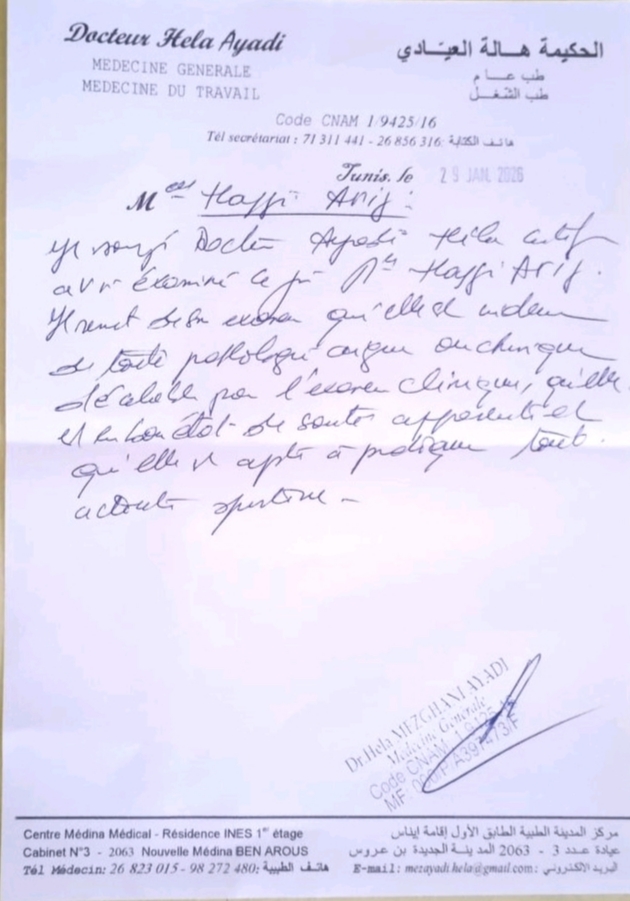 Docteur Hela Ayadi
الحكيمة هالة العيّادي
MEDECINE GENERALE
طب عام
MEDECINE DU TRAVAIL
طب الشغل
Code CNAM 1/9425/16
Tél secrétariat : 71 311 441 - 26 856 316: هاتف الكتابة
Tunis, le 29 JAN. 2026
M elle Haffi Arij :
Docteur Ayadi Héla certifie
avoir examiné ce jour Mlle Haffi Arij.
Il ressort de son examen qu'elle est indemne
de toute pathologie aigue ou chronique
décelable par l'examen clinique, qu'elle
est en bon état de santé apparent et
qu'elle est apte à pratiquer toute
activité sportive -
Dr.Hela MEZGHANI AYADI
Médecine Generale
Code CNAM
MF:
Centre Médina Médical - Résidence INES 1er étage
مركز المدينة الطبية الطابق الأول إقامة إيناس
Cabinet N°3 - 2063 Nouvelle Médina BEN AROUS
عيادة عدد 3 - 2063 المدينة الجديدة بن عروس
Tél Médecin: 26 823 015 - 98 272 480: هاتف الطبيبة
E-mail: mezayadi.hela@gmail.com: البريد الالكتروني